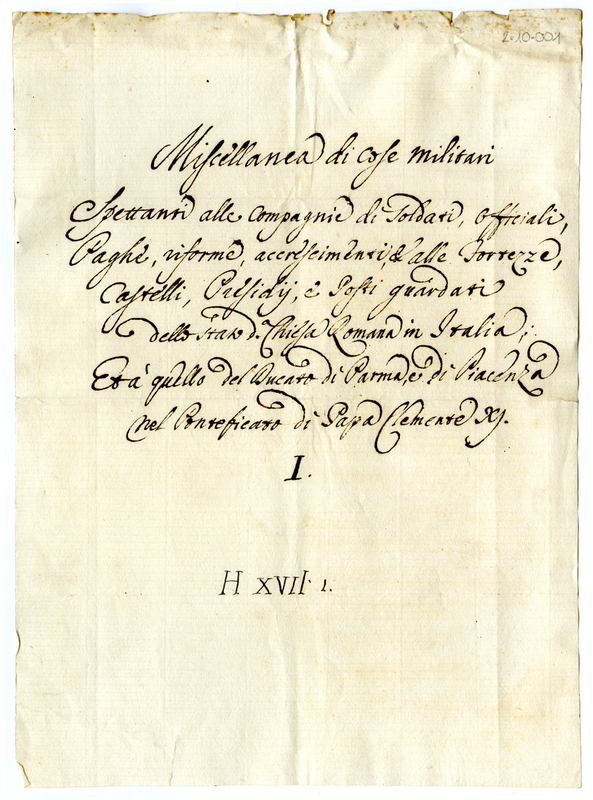 2-10-001
Miscellanea di cose militari
Spettanti alle compagnie di Soldati, Officiali,
Paghe, riforme, accrescimenti, & alle Fortezze,
Castelli, Presidij, e Posti guardati
dello stato d. Chiesa Romana in Italia;
Et à quello del Ducato di Parma, e di Piacenza
nel Ponteficato di Papa Clemente XJ.
I.
H XVII. 1.